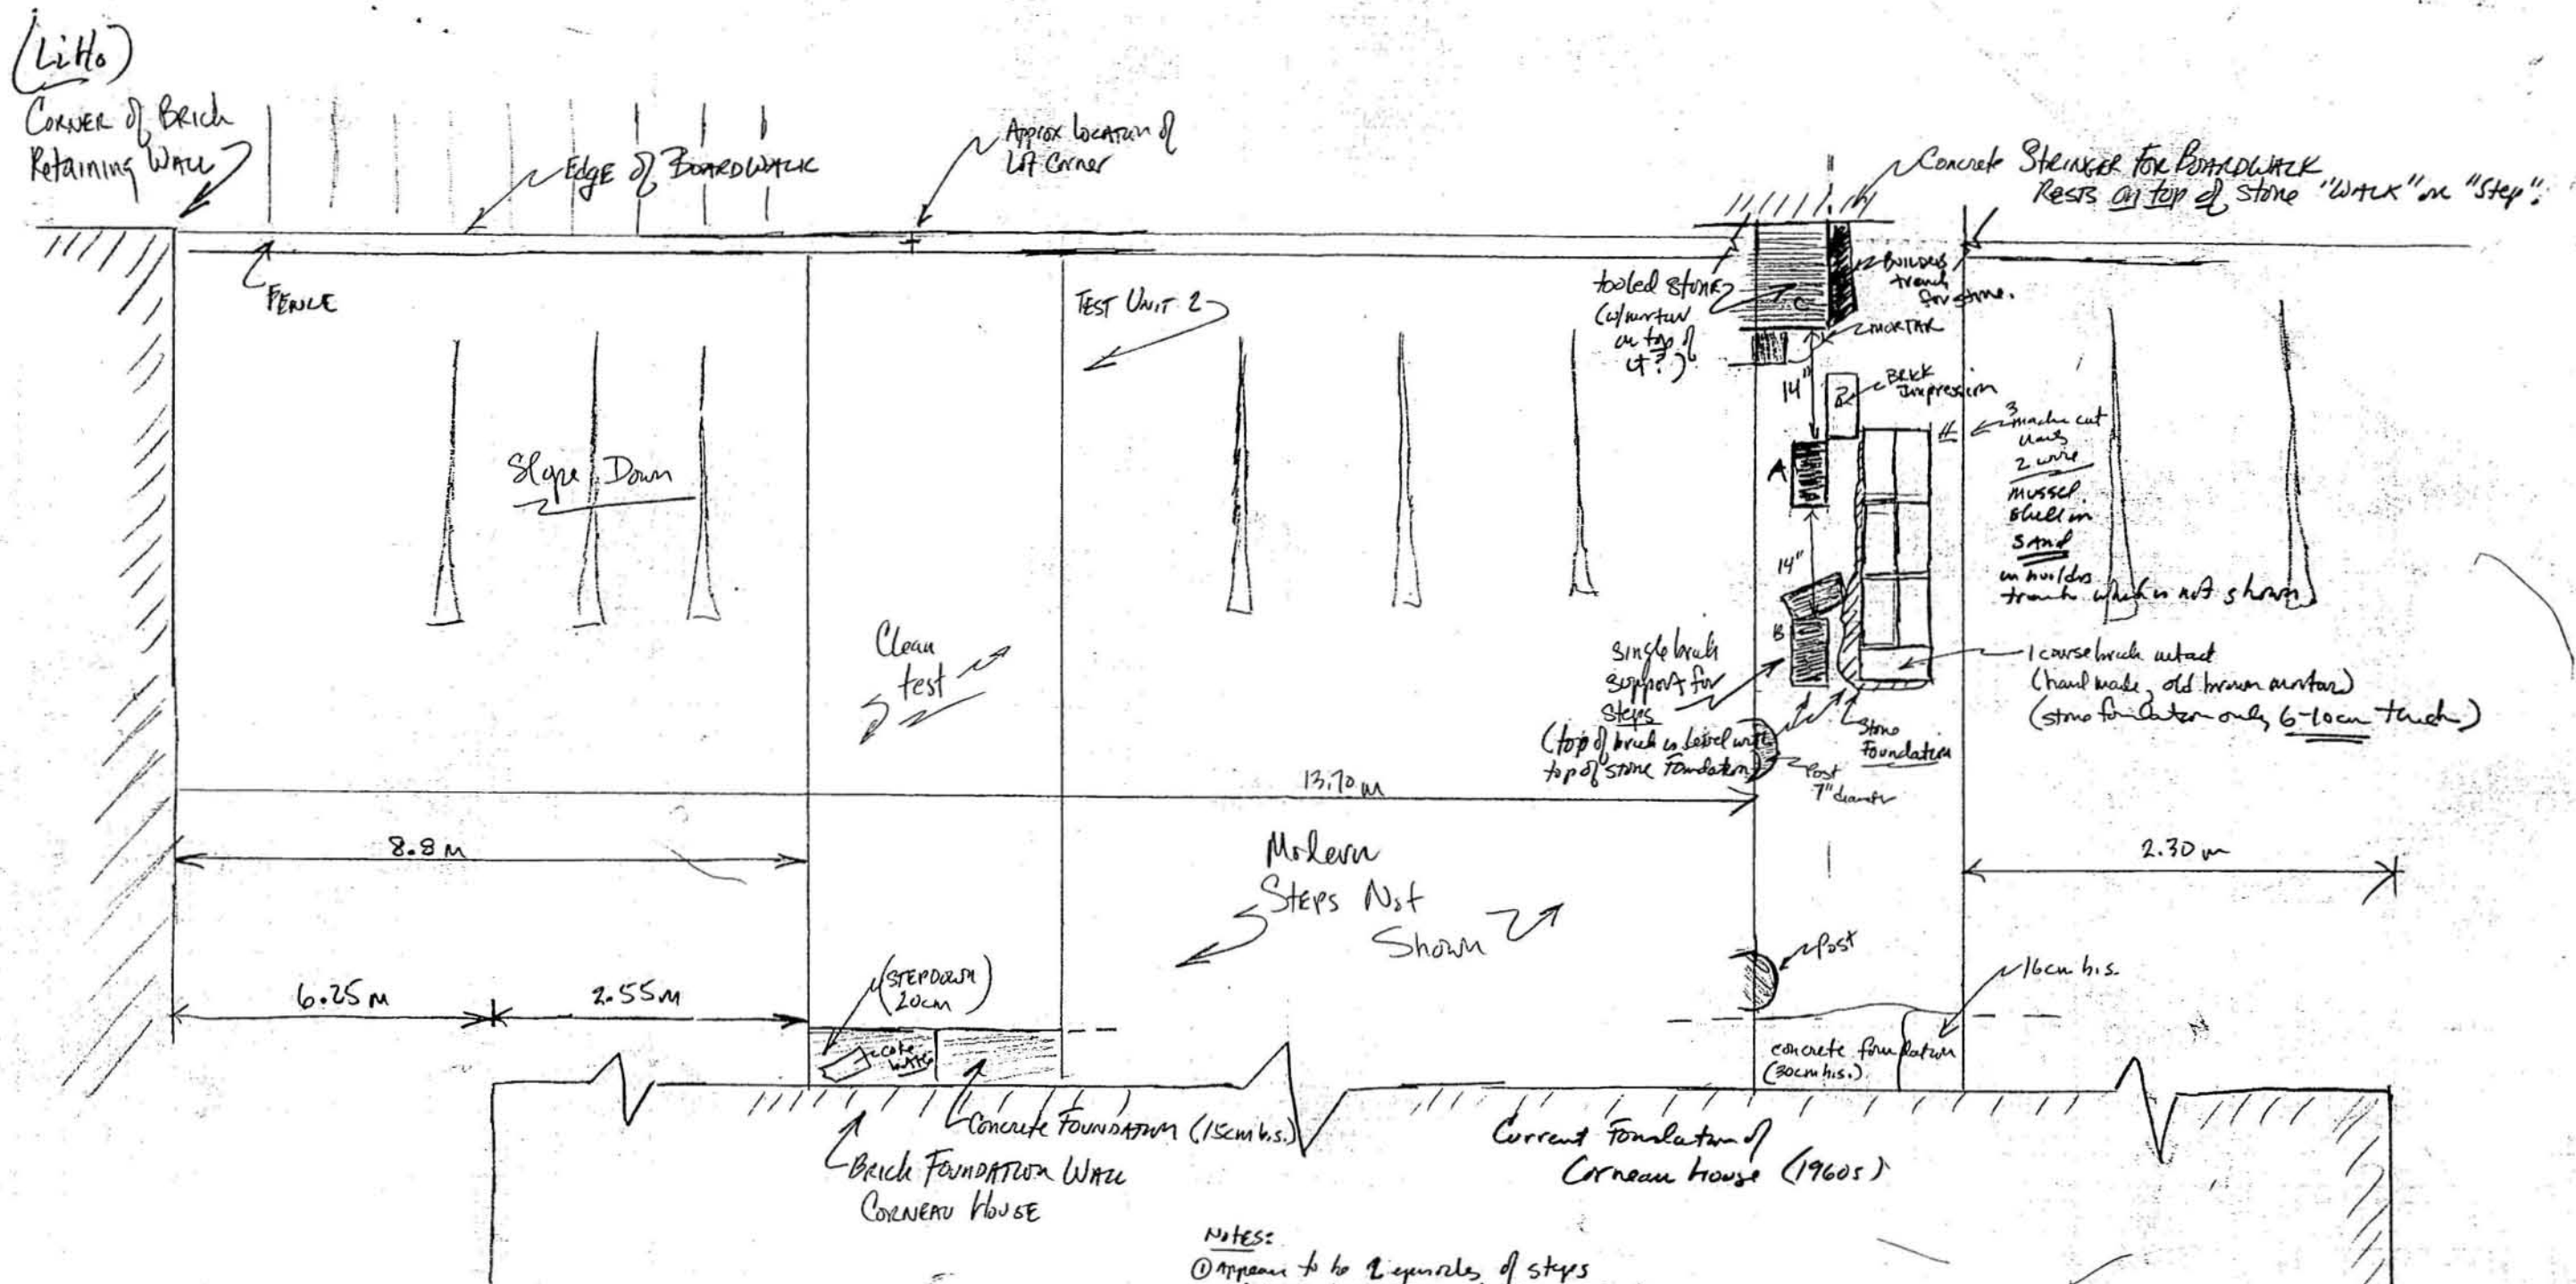 (Litto)
Corner of Brick
Retaining Wall
Edge of Boardwalk
Approx location of
Lot Corner
Concrete Stringer For Boardwalk
Rests on top of stone "walk" or "step".
Fence
Test Unit 2
tooled stone
(w/mortar
on top of
it?)
C
Builders
trench
for stone.
Mortar
14"
Brick
Impression
A
3 machine cut
nails
2 wire
mussel
shell in
sand
in builders
trench which is not shown
Slope Down
14"
B
Clean
test
single brick
support for
steps
(top of brick is level with
top of stone Foundation)
1 course brick intact
(hand made, old brown mortar)
(stone foundation only 6-10cm thick)
Stone
Foundation
Post
7" diameter
13.70 m
8.8 m
Modern
Steps Not
Shown
2.30 m
Post
16cm b.s.
6.25 m
2.55 m
(Stepdown
20cm)
concrete foundation
(30cm b.s.)
Concrete Foundation (15cm b.s.)
Brick Foundation Wall
Corneau House
Current Foundation of
Corneau House (1960s)
Notes:
① Appear to be 2 episodes of steps